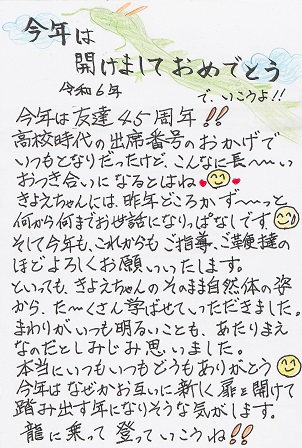 今年は
開けましておめでとう
令和6年
で、いこうよ!!
今年は友達45周年!!
高校時代の出席番号のおかげで
いつもとなりだったけど、こんなに長〜〜い
おつき合いになるとはね
きよえちゃんには、昨年どころかず〜っと
何から何までお世話になりっぱなしです
そして今年も、これからもご指導、ご鞭撻の
ほどよろしくお願いいたします。
といっても、きよえちゃんのそのまま自然体の姿
から、た〜くさん学ばせていただきました。
まわりがいつも明るいことも、あたりまえ
なのだとしみじみ思いました。
本当にいつもいつもどうもありがとう
今年はなぜかお互いに新しく扉を開けて
踏み出す年になりそうな気がします。
龍に乗って登っていこうね!!